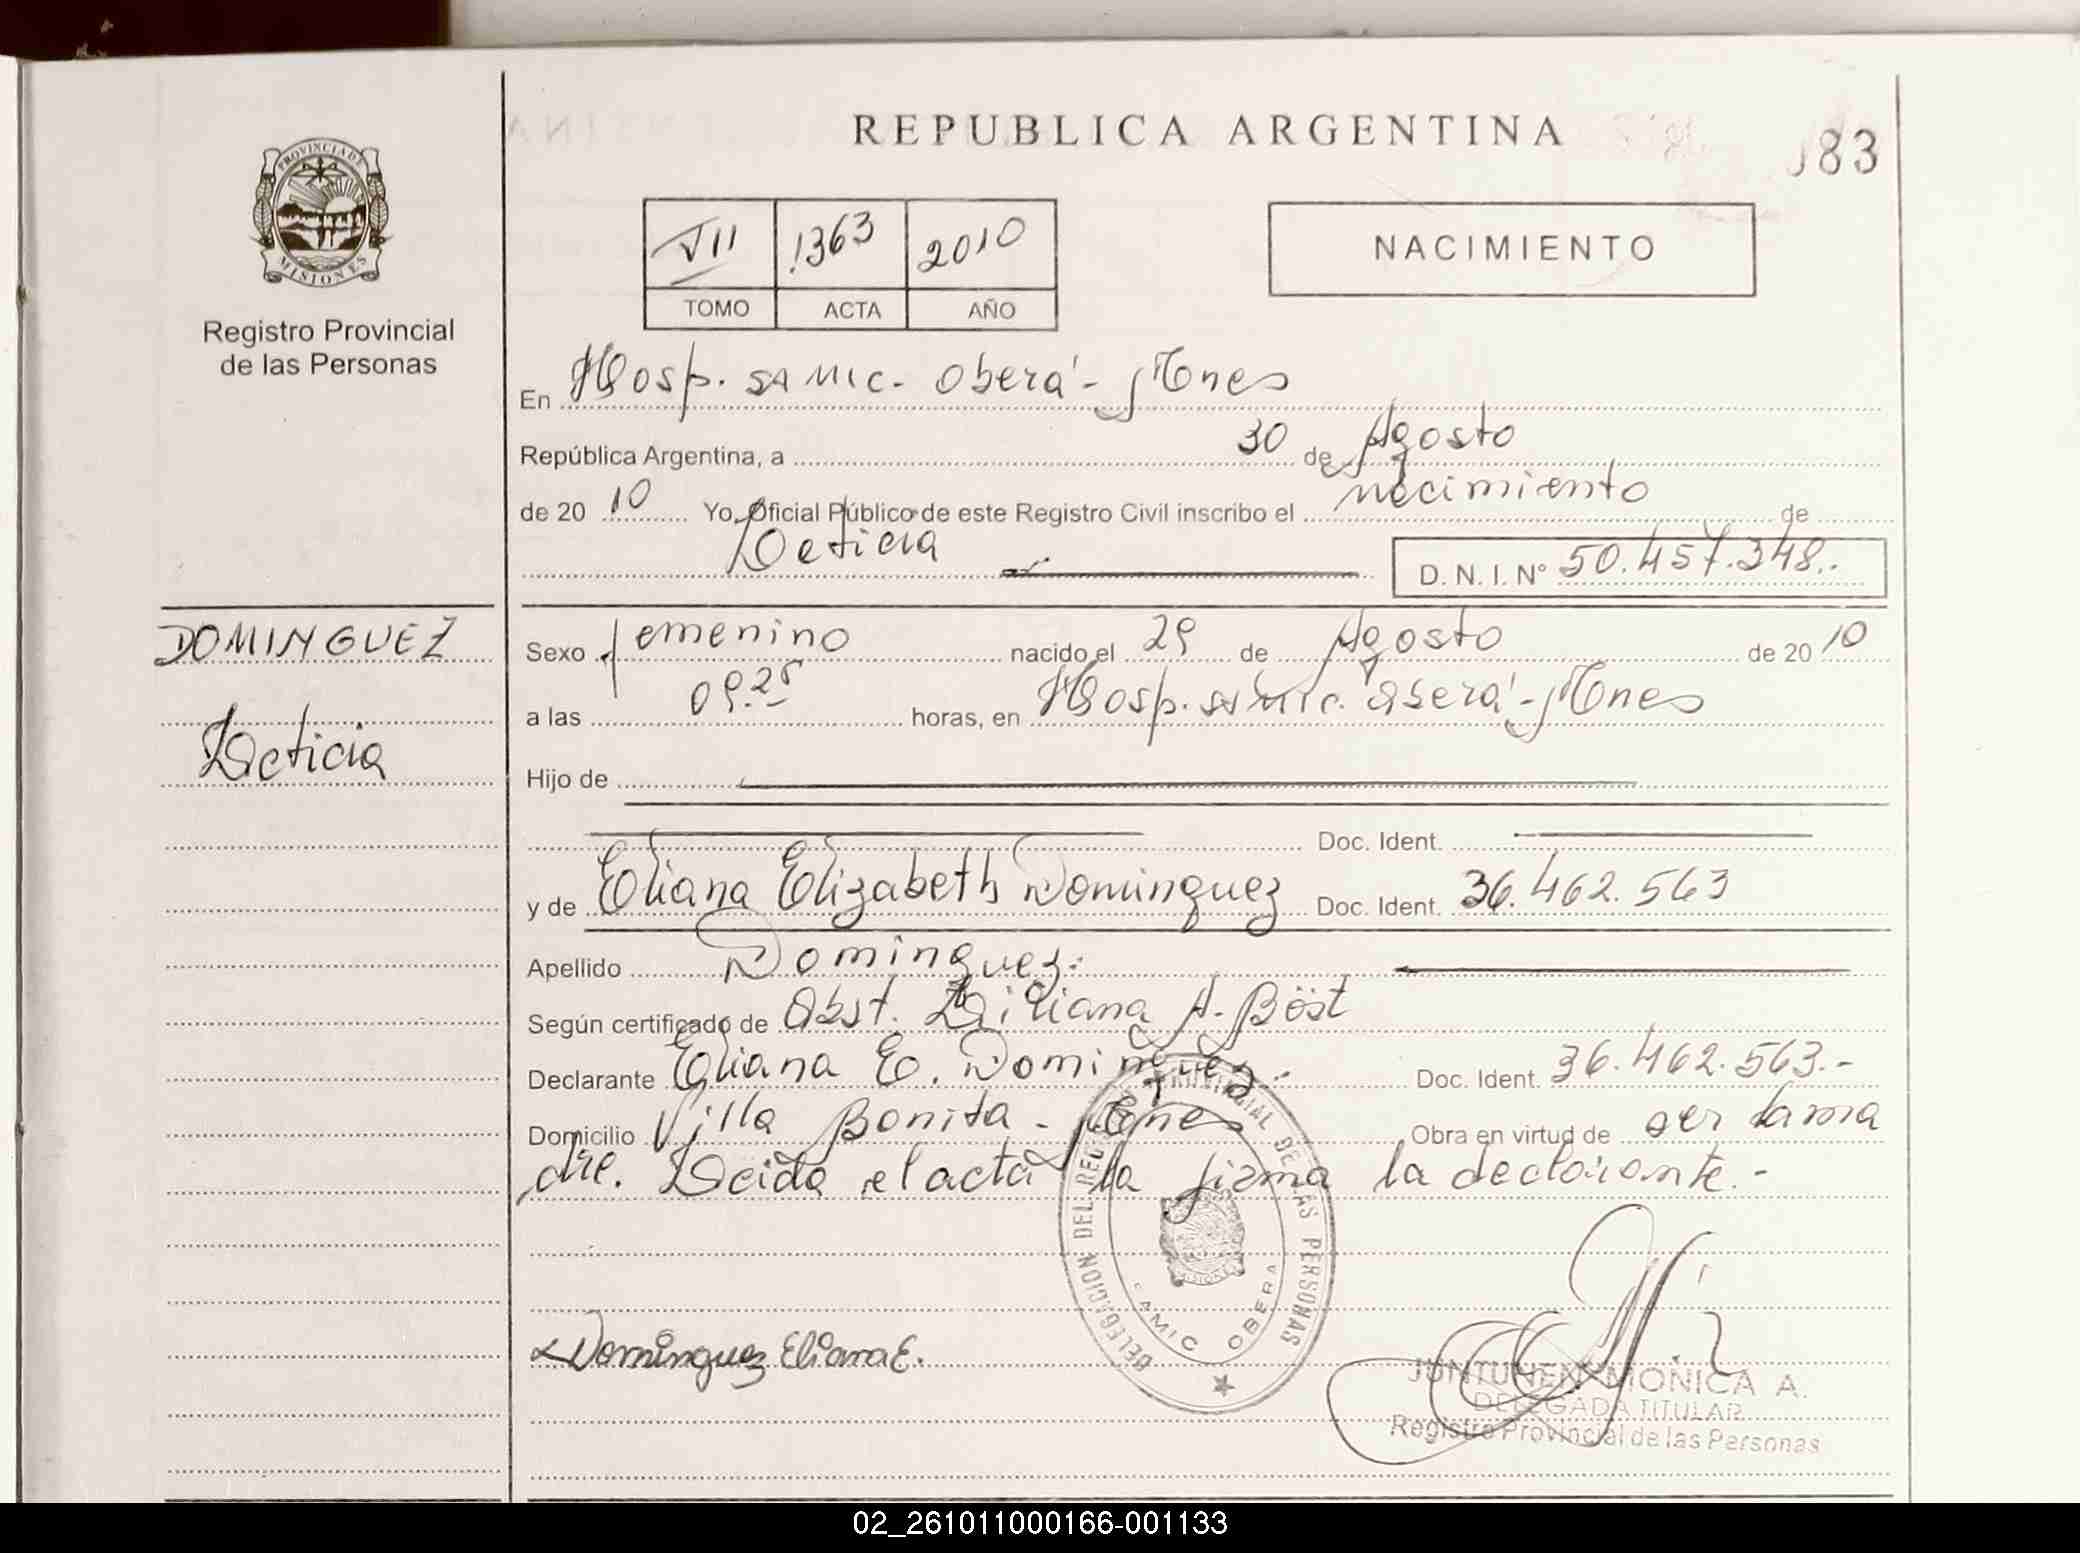 REPUBLICA ARGENTINA
183
PROVINCIA DE
MISIONES
Registro Provincial
de las Personas
VII 1363 2010
TOMO ACTA AÑO
NACIMIENTO
En Hosp. SAMIC. Oberá - Mnes
República Argentina, a 30 de Agosto
de 20 10 Yo, Oficial Público de este Registro Civil inscribo el nacimiento de
Leticia D. N. I. Nº 50.457.348.-
DOMINGUEZ
Leticia
Sexo femenino nacido el 29 de Agosto de 20 10
a las 09.25 horas, en Hosp. SAMIC. Oberá - Mnes
Hijo de
Doc. Ident.
y de Eliana Elizabeth Dominguez Doc. Ident. 36.462.563
Apellido Dominguez.
Según certificado de Obst. Liliana A. Böst
Declarante Eliana E. Dominguez.- Doc. Ident. 36.462.563.-
Domicilio Villa Bonita - Mnes Obra en virtud de ser la ma
dre. Leida el acta la firma la declarante.-
DELEGACION DEL REGISTRO PROVINCIAL DE LAS PERSONAS
SAMIC OBERA
MISIONES
Dominguez Eliana E.
JUNTUNEN MONICA A.
DELEGADA TITULAR
Registro Provincial de las Personas
02_261011000166-001133